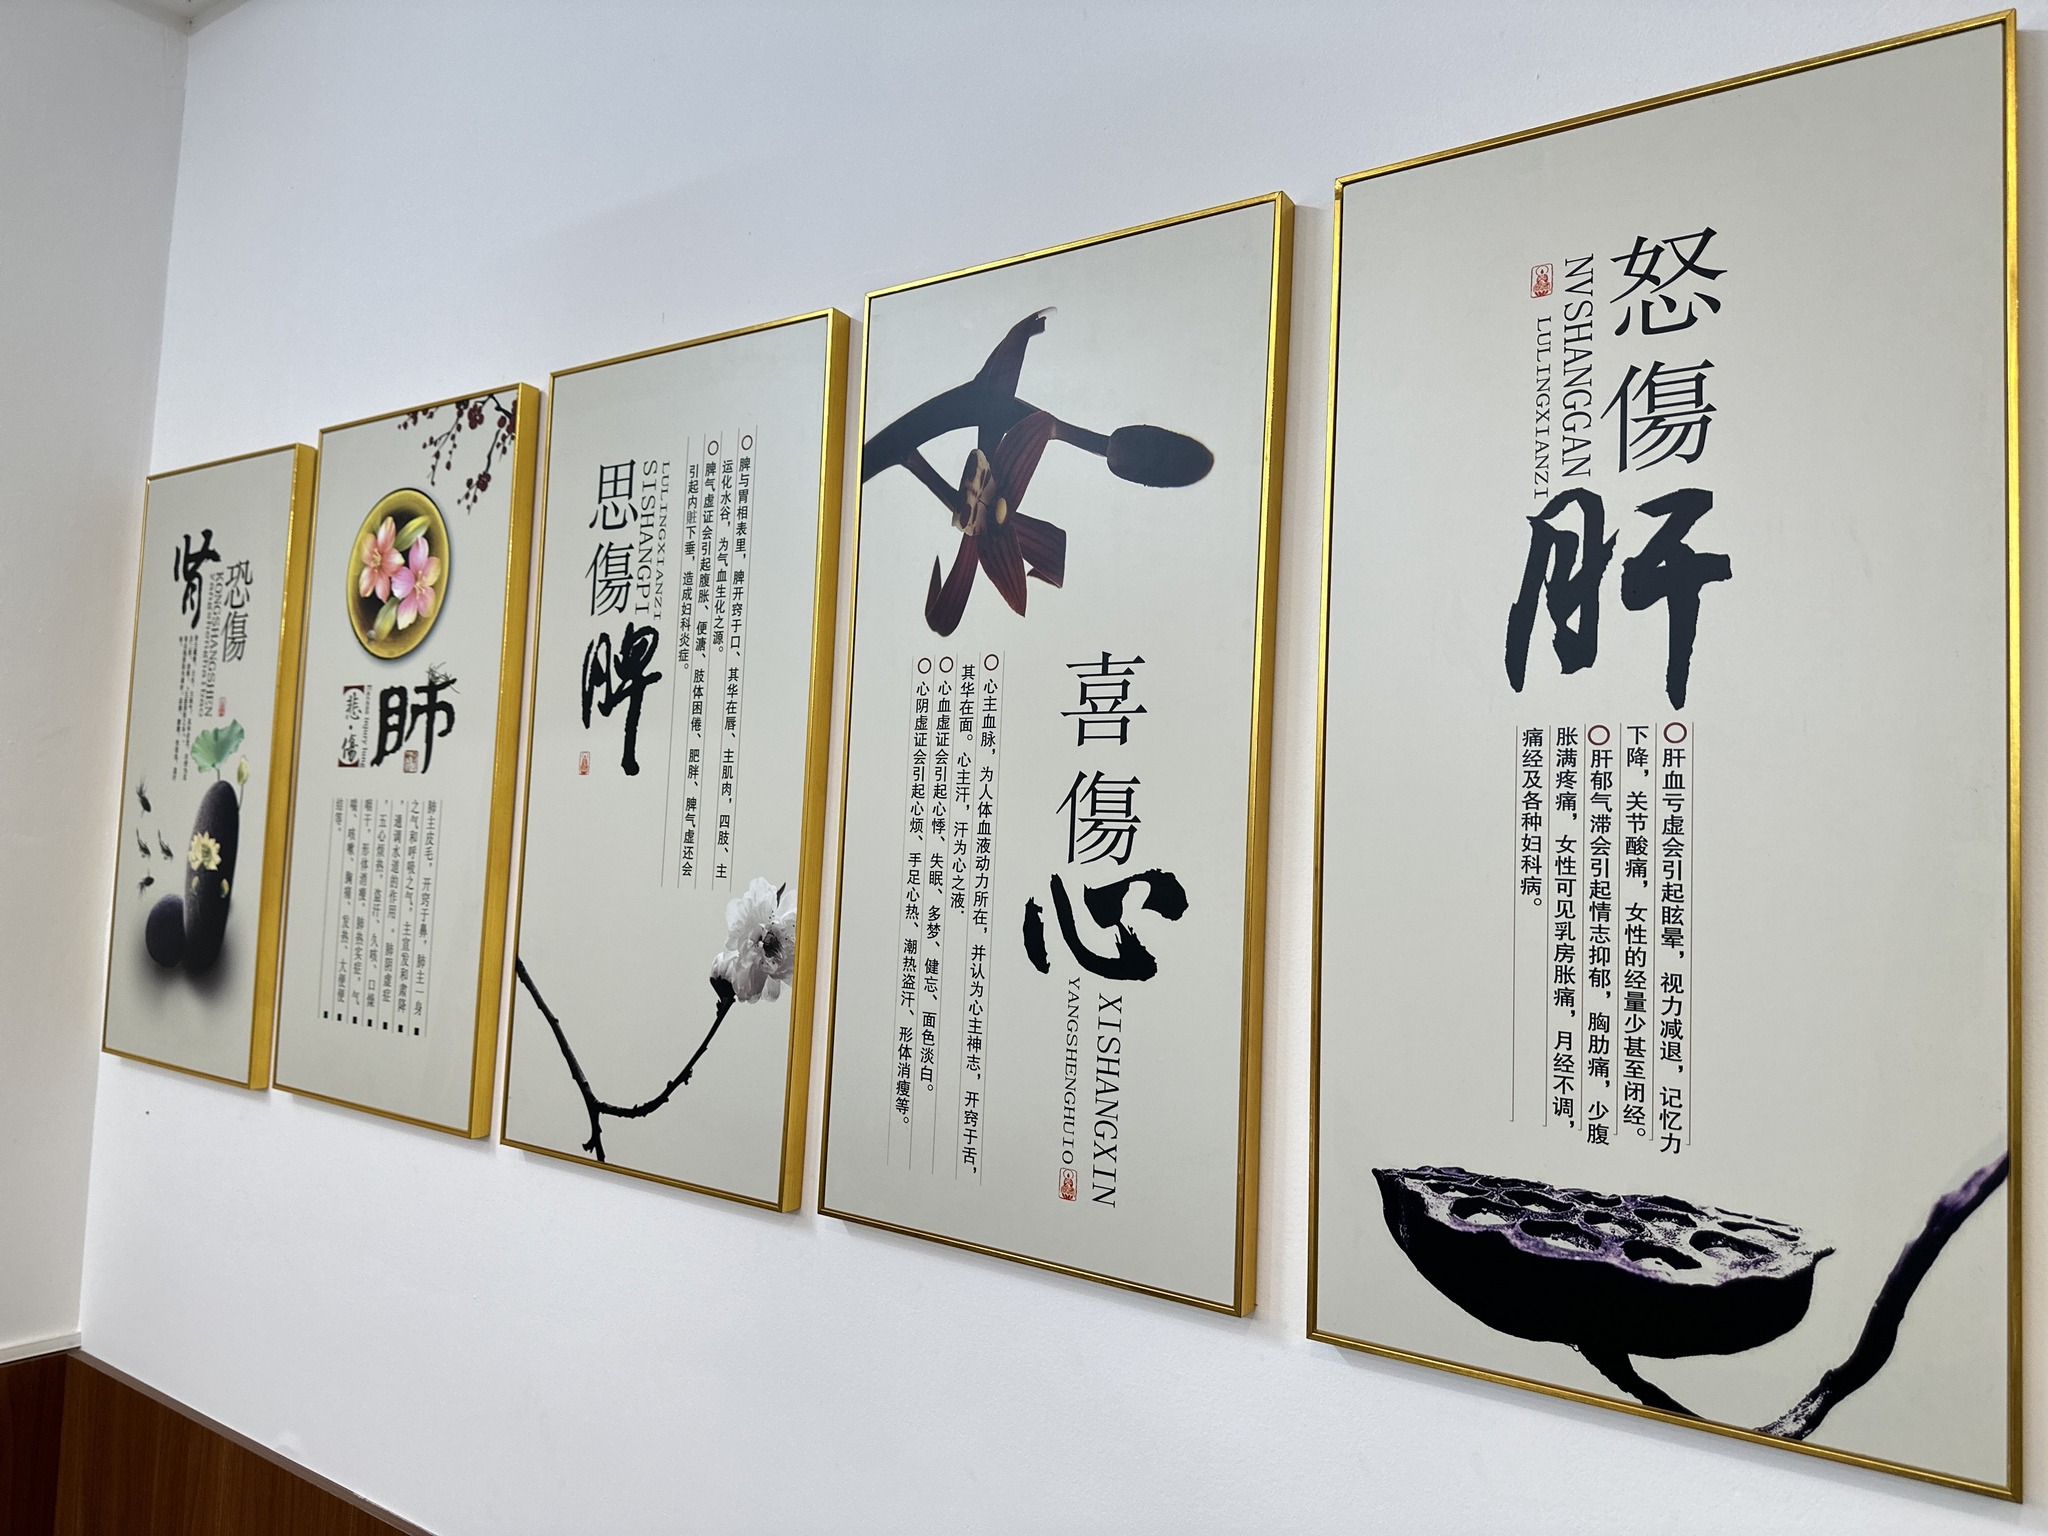 怒傷肝
NVSHANGGAN
LULINGXIANZI
○肝血亏虚会引起眩晕，视力减退，记忆力
下降，关节酸痛，女性的经量少甚至闭经。
○肝郁气滞会引起情志抑郁，胸肋痛，少腹
胀满疼痛，女性可见乳房胀痛，月经不调，
痛经及各种妇科病。
喜傷心
XISHANGXIN
YANGSHENGHUIO
○心主血脉，为人体血液动力所在，并认为心主神志，开窍于舌，
其华在面。心主汗，汗为心之液.
○心血虚证会引起心悸、失眠、多梦、健忘、面色淡白。
○心阴虚证会引起心烦、手足心热、潮热盗汗、形体消瘦等。
○脾与胃相表里，脾开窍于口、其华在唇、主肌肉，四肢、主
运化水谷，为气血生化之源。
○脾气虚证会引起腹胀、便溏、肢体困倦、肥胖、脾气虚还会
引起内脏下垂，造成妇科炎症。
LULINGXIANZI
SISHANGPI
思傷脾
肺
悲·傷
肺主皮毛，开窍于鼻，肺主一身
之气和呼吸之气，主宣发和肃降
，通调水道的作用。肺阴虚症
，五心烦热，盗汗、久咳、口燥
咽干，形体消瘦。肺热实症，气
喘、咳嗽、胸痛、发热、大便便
结等。
恐傷
KONGSHANGSHEN
肾